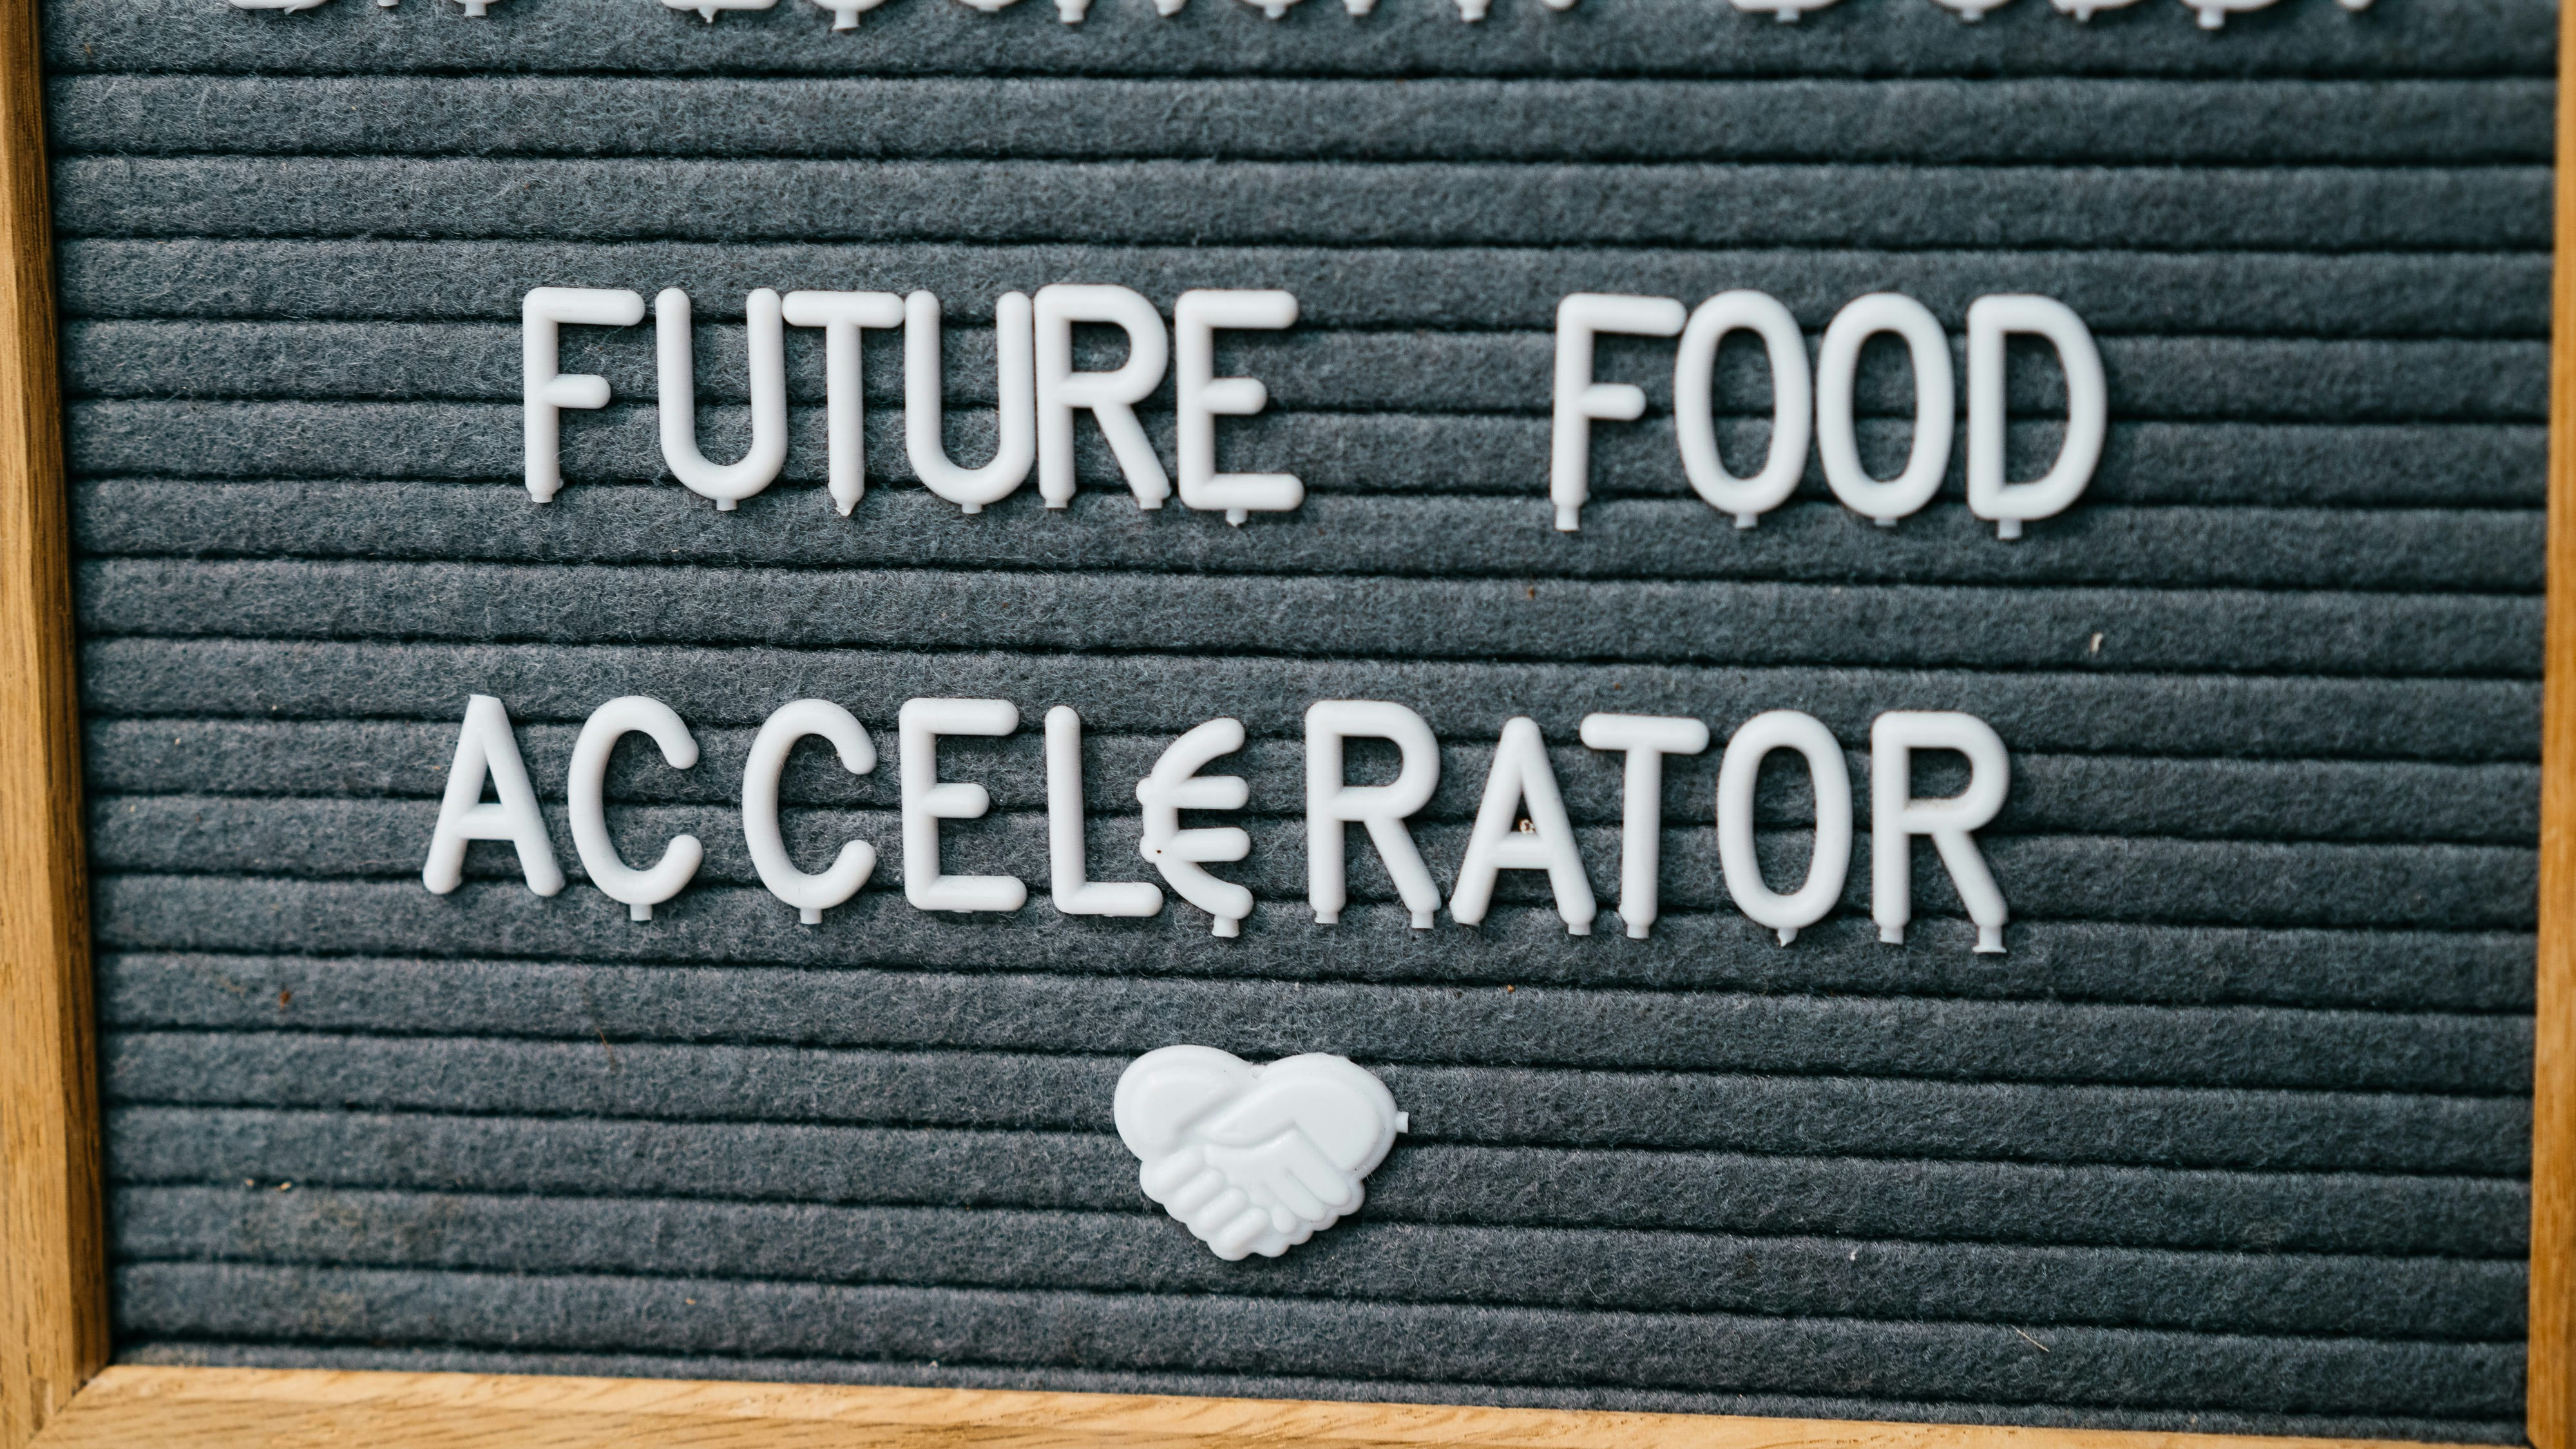 FUTURE FOOD
ACCEL€RATOR